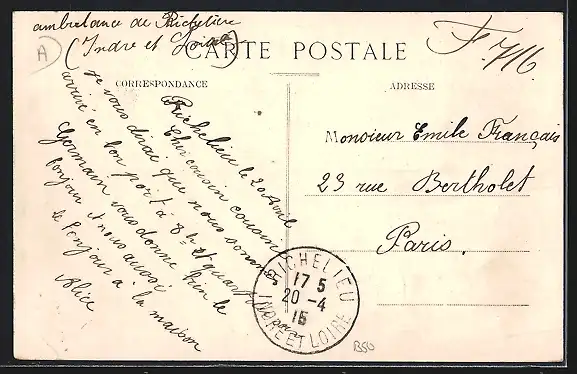 ambulance de Richelieu
(Indre et Loire)
A
F. 7/16
CARTE POSTALE
CORRESPONDANCE
ADRESSE
Richelieu le 20 Avril
Cher cousin cousine
Je vous dirai que nous sommes
arrivé en bon port à 8h et quart
Germain vous donne bien le
bonjour et nous aussi
le bonjour à la maison
Alice
Monsieur Emile Français
23 rue Bertholet
Paris.
RICHELIEU
17 5
20 -4
15
INDRE ET LOIRE
B50